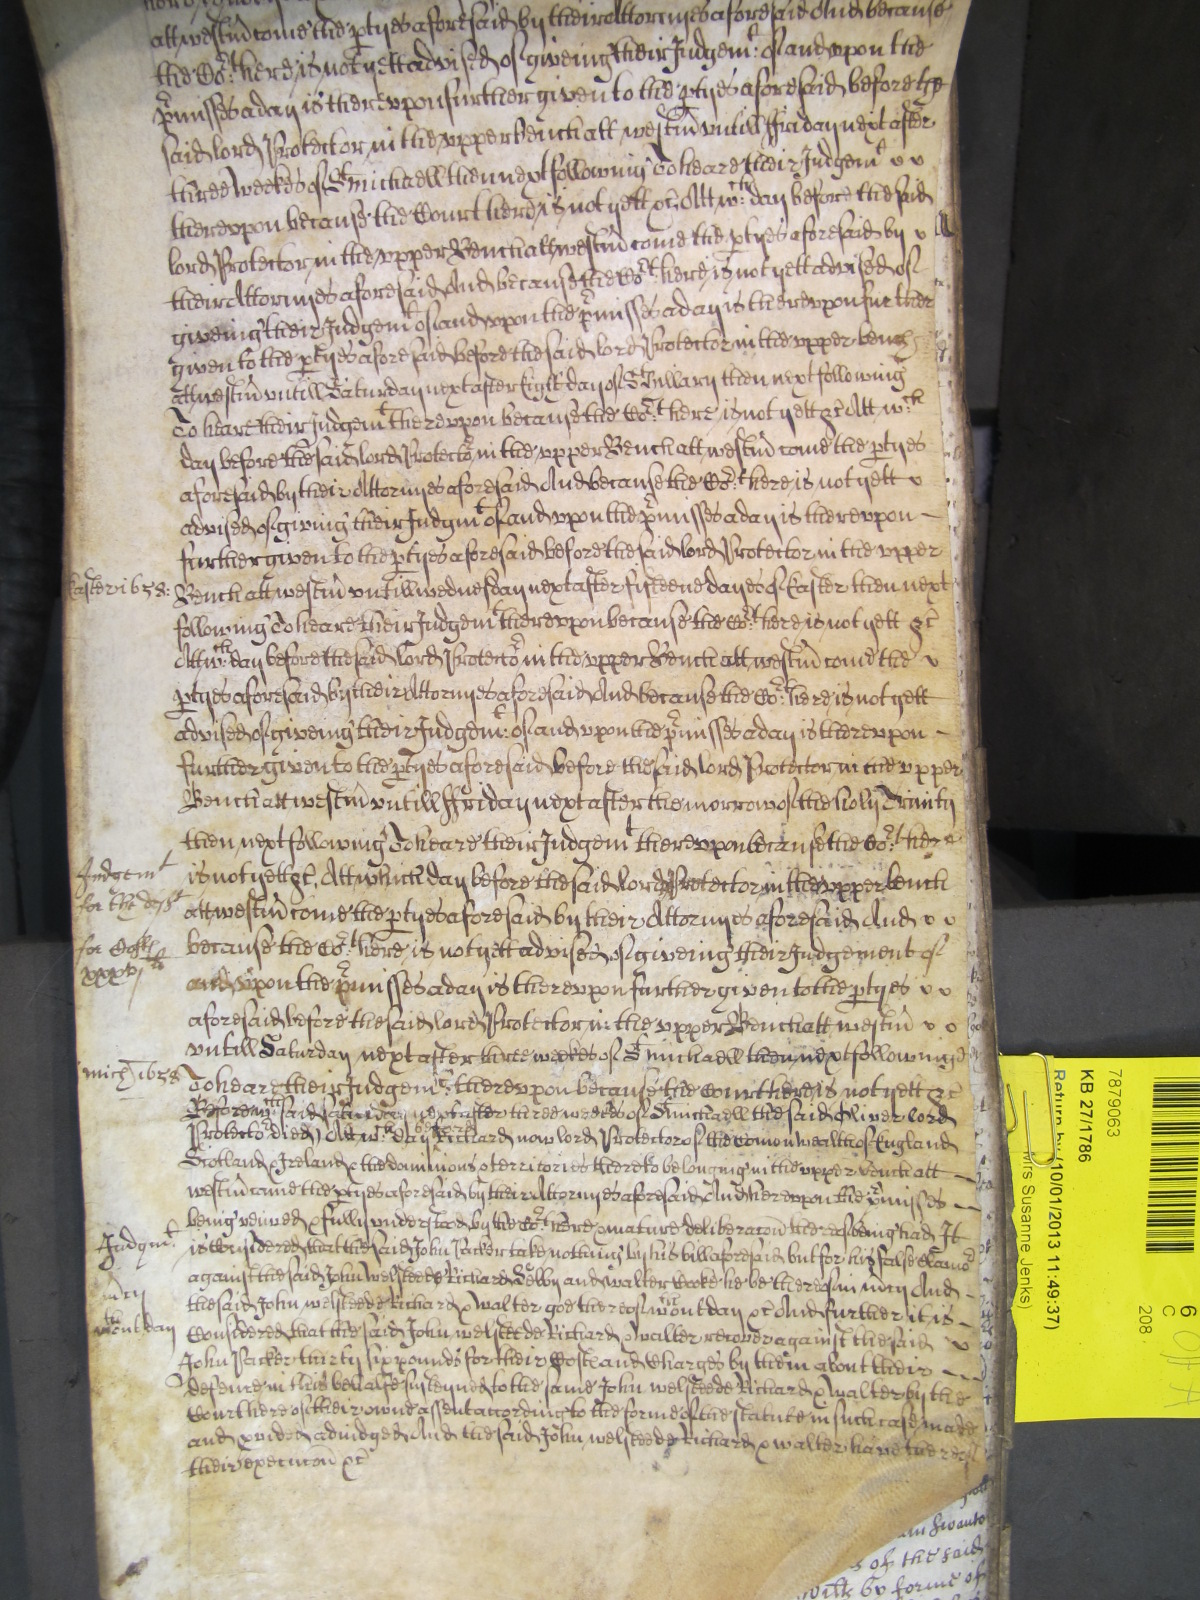 att westm̃ come the ptyes aforesaid by their Attornyes aforesaid And because
the Cort here is not yett advised of giveing their Judgemt of and upon the
pmisses a day is thereupon further given to the ptyes aforesaid before the
said lord Protector in the upper bench att westm̃ untill ffriday next after
three weekes of St Michaell then next following To heare their Judgemt
thereupon because the Court here is not yett &c Att wch day before the said
lord Protector in the upper Bench att westm̃ come the ptyes aforesaid by
their Attornyes aforesaid And because the Cort here is not yett advised of
giveing their Judgemt of and upon the pmisses a day is thereupon further
given to the ptyes aforesaid before the said lord Protector in the upper bench
att westm̃ untill Saturday next after Eight dayes of St Hillary then next following
To heare their Judgemt thereupon because the Cort here is not yett &c Att wch
day before the said lord Protector in the upper Bench att westm̃ come the ptyes
aforesaid by their Attornyes aforesaid And because the Cort here is not yett
advised of giving their Judgmt of and upon the pmisses a day is thereupon
further given to the ptyes aforesaid before the said lord Protector in the upper
Easter 1658: Bench att westm̃ untill wednesday next after fifteene dayes of Easter then next
following To heare their Judgemt thereupon because the Cort here is not yett &c
Att wch day before the said Lord Protector in the upper Bench att westm̃ come the
ptyes aforesaid by their Attornyes aforesaid And because the Cort here is not yett
advised of giveing their Judgemt of and upon the pmisses a day is thereupon
further given to the ptyes aforesaid before the said lord Protector in the upper
Bench att westm̃ untill ffriday next after the morrow of the holy Trinity
then next following To heare their Judgemt thereupon because the Cort here
Judgemt
is not yett &c Att which day before the said lord Protector in the upper bench
for the deft
att westm̃ come the ptyes aforesaid by their Attornyes aforesaid And
for Costs
because the Cort here is not yett advised of giveing their Judgement of
xxxvj li
and upon the pmisses a day is thereupon further given to the ptyes
aforesaid before the said lord Protector in the upper Bench att westm̃
untill Saturday next after three weekes of St michaell then next following
mich 1658 To heare their Judgemt thereupon because the Court here is not yett &c
Before wch said Saturday next after three weekes of St Michaell the said Oliver lord
Protector died Att wch day before Richard now lord Protector of the comon wealth of England
Scotland & Ireland & the dominions & territories thereto belonging in the upper bench att
westm̃ came the ptyes aforesaid by their Attornyes aforesaid And hereupon the pmisses
being veiwed & fully understood by the Cort here & mature deliberacon thereof being had It
Judgmt
is Considered that the said John Packer take nothing by his bill aforesaid but for his false Clame
against the said John welsteede Richard Selby and walter Cooke he be thereof in mercy And
mcy
the said John welsteede Richard & Walter goe thereof wthout day &c And further it is
wthout day
Considered that the said John welsteede Richard & Walter recover against the said
John Packer thirty six pounds for their Costs and Charges by them about their
defence in this behalfe susteyned to the same John welsteede Richard & Walter by the
Court here of their owne assent according to the forme of the statute in such case made
and pvided adiudged And the said John welsteede Richard & walter have thereof
their execucon &c
an Swanto
s of the said
with by forme of
7879063
KB 27/1786
Return by (10/01/2013 11:49:37)
Mrs Susanne Jenks)
6
C
208